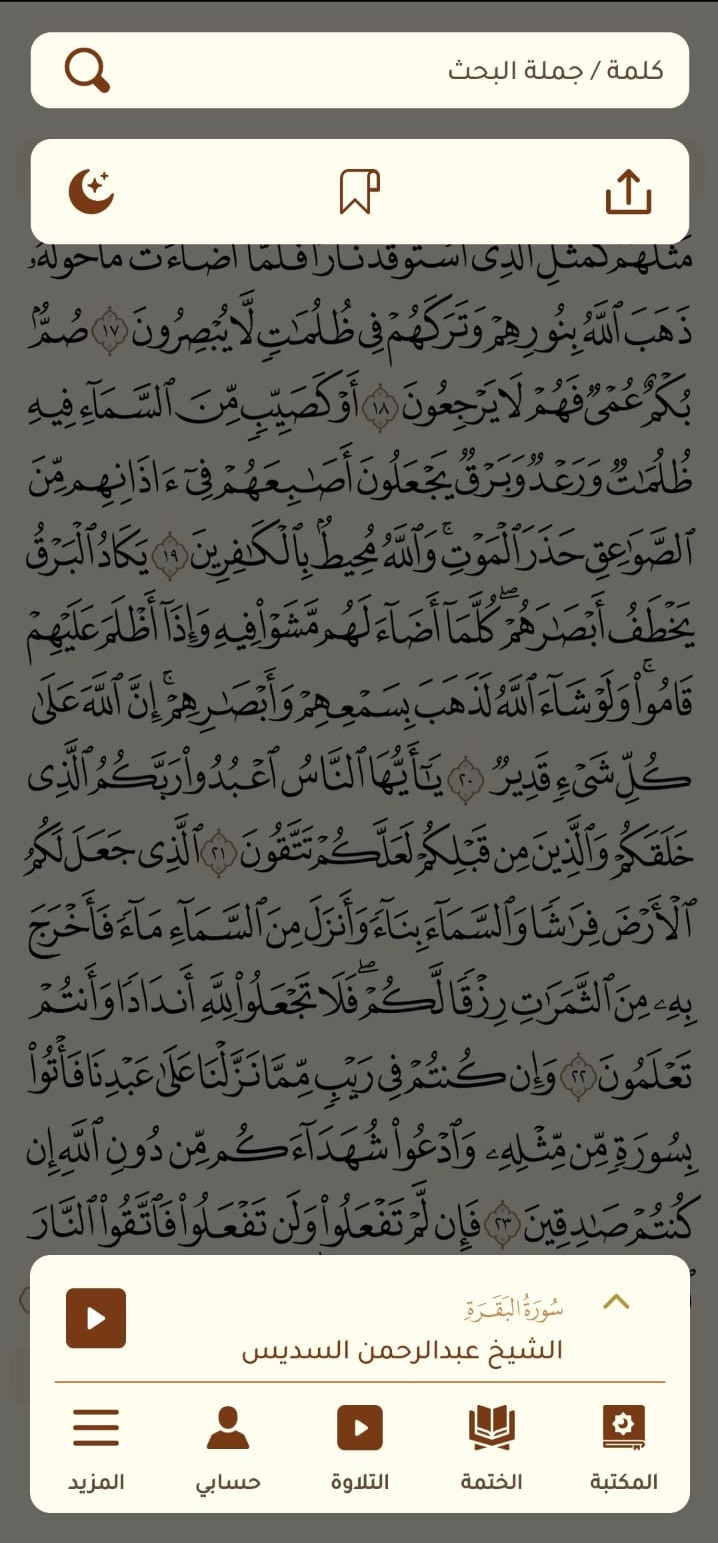 كلمة / جملة البحث
مَثَلُهُمْ كَمَثَلِ ٱلَّذِى ٱسْتَوْقَدَ نَارًا فَلَمَّآ أَضَآءَتْ مَا حَوْلَهُۥ
ذَهَبَ ٱللَّهُ بِنُورِهِمْ وَتَرَكَهُمْ فِى ظُلُمَٰتٍ لَّا يُبْصِرُونَ ١٧ صُمٌّۢ
بُكْمٌ عُمْىٌ فَهُمْ لَا يَرْجِعُونَ ١٨ أَوْ كَصَيِّبٍ مِّنَ ٱلسَّمَآءِ فِيهِ
ظُلُمَٰتٌ وَرَعْدٌ وَبَرْقٌ يَجْعَلُونَ أَصَٰبِعَهُمْ فِىٓ ءَاذَانِهِم مِّنَ
ٱلصَّوَٰعِقِ حَذَرَ ٱلْمَوْتِ ۚ وَٱللَّهُ مُحِيطٌۢ بِٱلْكَٰفِرِينَ ١٩ يَكَادُ ٱلْبَرْقُ
يَخْطَفُ أَبْصَٰرَهُمْ ۖ كُلَّمَآ أَضَآءَ لَهُم مَّشَوْا۟ فِيهِ وَإِذَآ أَظْلَمَ عَلَيْهِمْ
قَامُوا۟ ۚ وَلَوْ شَآءَ ٱللَّهُ لَذَهَبَ بِسَمْعِهِمْ وَأَبْصَٰرِهِمْ ۚ إِنَّ ٱللَّهَ عَلَىٰ
كُلِّ شَىْءٍ قَدِيرٌ ٢٠ يَٰٓأَيُّهَا ٱلنَّاسُ ٱعْبُدُوا۟ رَبَّكُمُ ٱلَّذِى
خَلَقَكُمْ وَٱلَّذِينَ مِن قَبْلِكُمْ لَعَلَّكُمْ تَتَّقُونَ ٢١ ٱلَّذِى جَعَلَ لَكُمُ
ٱلْأَرْضَ فِرَٰشًا وَٱلسَّمَآءَ بِنَآءً وَأَنزَلَ مِنَ ٱلسَّمَآءِ مَآءً فَأَخْرَجَ
بِهِۦ مِنَ ٱلثَّمَرَٰتِ رِزْقًا لَّكُمْ ۖ فَلَا تَجْعَلُوا۟ لِلَّهِ أَندَادًا وَأَنتُمْ
تَعْلَمُونَ ٢٢ وَإِن كُنتُمْ فِى رَيْبٍ مِّمَّا نَزَّلْنَا عَلَىٰ عَبْدِنَا فَأْتُوا۟
بِسُورَةٍ مِّن مِّثْلِهِۦ وَٱدْعُوا۟ شُهَدَآءَكُم مِّن دُونِ ٱللَّهِ إِن
كُنتُمْ صَٰدِقِينَ ٢٣ فَإِن لَّمْ تَفْعَلُوا۟ وَلَن تَفْعَلُوا۟ فَٱتَّقُوا۟ ٱلنَّارَ
سُورَةُ البَقَرَةِ
الشيخ عبدالرحمن السديس
المكتبة الختمة التلاوة حسابي المزيد